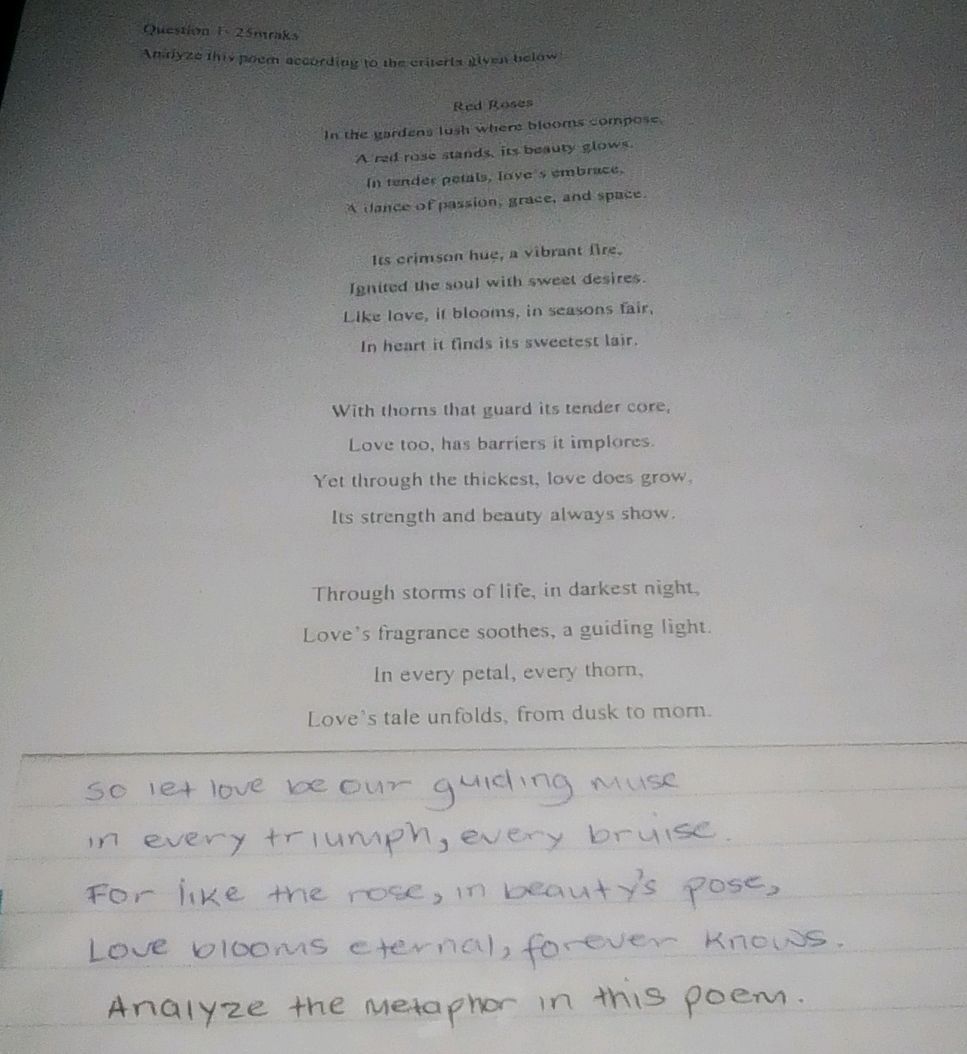 Question 1- 25mraks
Analyze this poem according to the criteria given below:
Red Roses
In the gardens lush where blooms compose,
A red rose stands, its beauty glows.
In tender petals, love's embrace,
A dance of passion, grace, and space.
Its crimson hue, a vibrant fire,
Ignited the soul with sweet desires.
Like love, it blooms, in seasons fair,
In heart it finds its sweetest lair.
With thorns that guard its tender core,
Love too, has barriers it implores.
Yet through the thickest, love does grow,
Its strength and beauty always show.
Through storms of life, in darkest night,
Love's fragrance soothes, a guiding light.
In every petal, every thorn,
Love's tale unfolds, from dusk to morn.
So let love be our guiding muse
in every triumph, every bruise.
For like the rose, in beauty's pose,
Love blooms eternal, forever knows.
Analyze the metaphor in this poem.